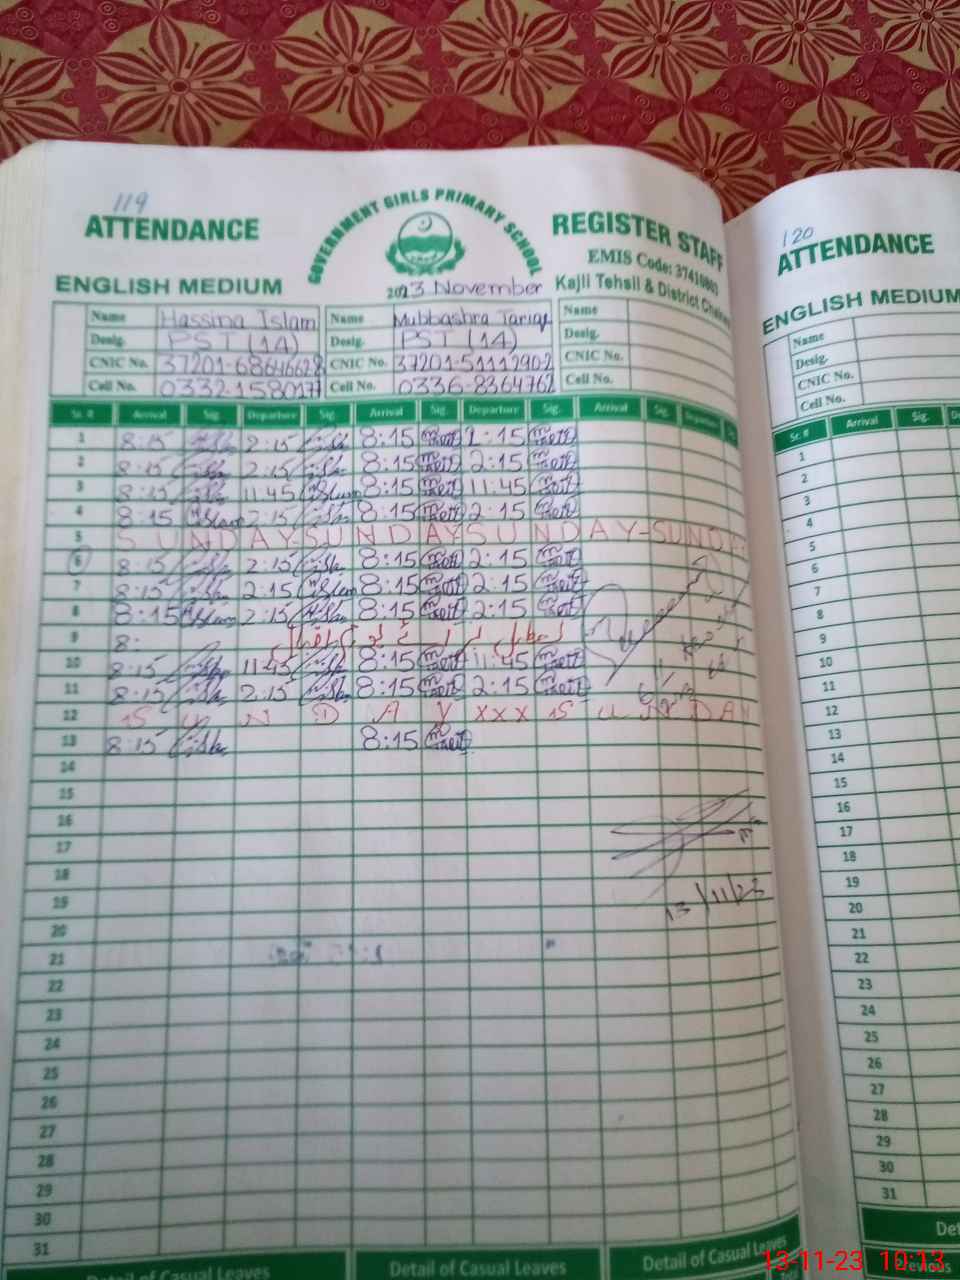 119
ATTENDANCE
GOVERNMENT GIRLS PRIMARY SCHOOL
REGISTER STAFF
EMIS Code: 37410803
ENGLISH MEDIUM
2023 November
Kajli Tehsil & District
Name Hassina Islam Name Mubbashra Tariq Name
Desig. PST (14) Desig. PST (14) Desig.
CNIC No. 37201-68646628 CNIC No. 37201-51112902 CNIC No.
Cell No. 0332-1580177 Cell No. 0336-8364762 Cell No.
Sr. # Arrival Sig. Departure Sig. Arrival Sig. Departure Sig. Arrival Sig. Departure
1 8:15 2:15 8:15 2:15
2 8:15 2:15 8:15 2:15
3 8:15 11:45 8:15 11:45
4 8:15 2:15 8:15 2:15
5 SUNDAY-SUNDAY SUNDAY-SUNDAY
6 8:15 2:15 8:15 2:15
7 8:15 2:15 8:15 2:15
8 8:15 2:15 8:15 2:15
9 8:
10 8:15 11:45 8:15 11:45
11 8:15 2:15 8:15 2:15
12 SUNDAY XXX SUNDAY
13 8:15 8:15
14
15
16
17
18
19
13/11/23
20
21
22
23
24
25
26
27
28
29
30
31
Detail of Casual Leaves Detail of Casual Leaves Detail of Casual Leaves
120
ATTENDANCE
ENGLISH MEDIUM
Name
Desig.
CNIC No.
Cell No.
Sr. # Arrival Sig.
1
2
3
4
5
6
7
8
9
10
11
12
13
14
15
16
17
18
19
20
21
22
23
24
25
26
27
28
29
30
31
Previous
13-11-23 10:13